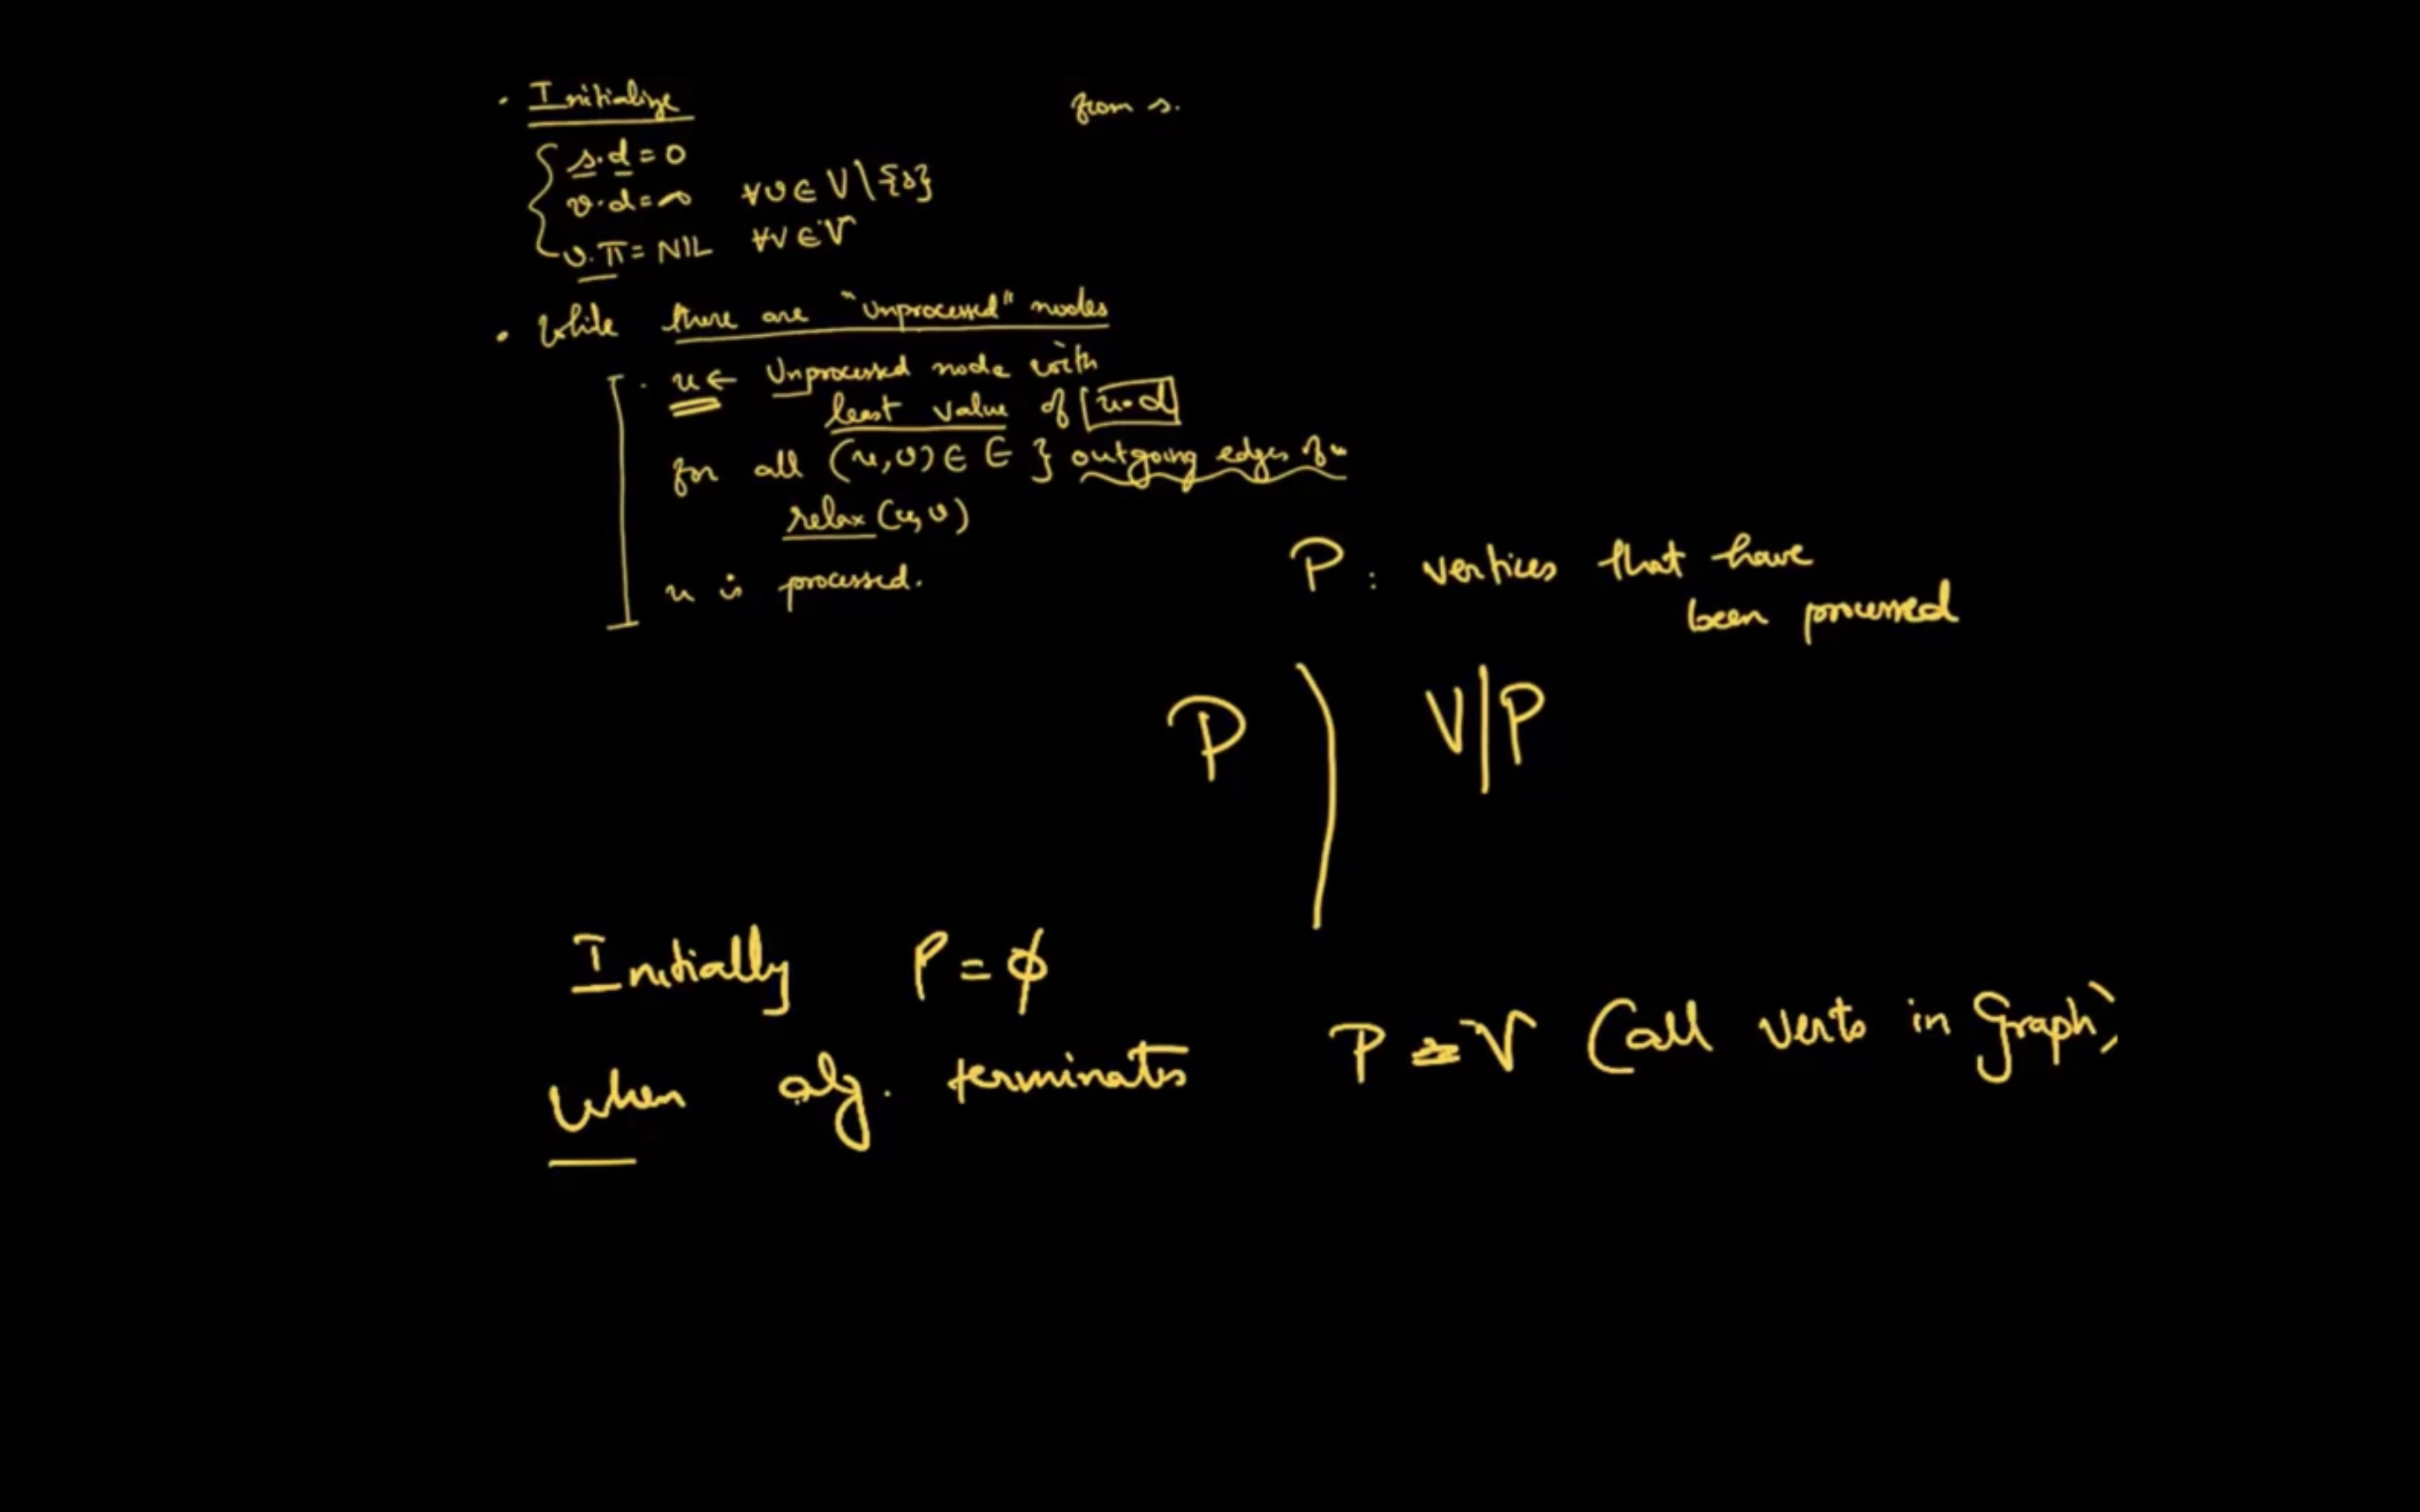 • Initialize
from s.
s.d = 0
v.d = ∞ ∀v ∈ V \ {s}
v.π = NIL ∀v ∈ V
• While there are "unprocessed" nodes
• u ← Unprocessed node with
least value of [u.d]
for all (u,v) ∈ E } outgoing edges of u
relax (u,v)
u is processed.
P : vertices that have
been processed
P ) V|P
Initially P = ϕ
When alg. terminates P = V (all verts in Graph)